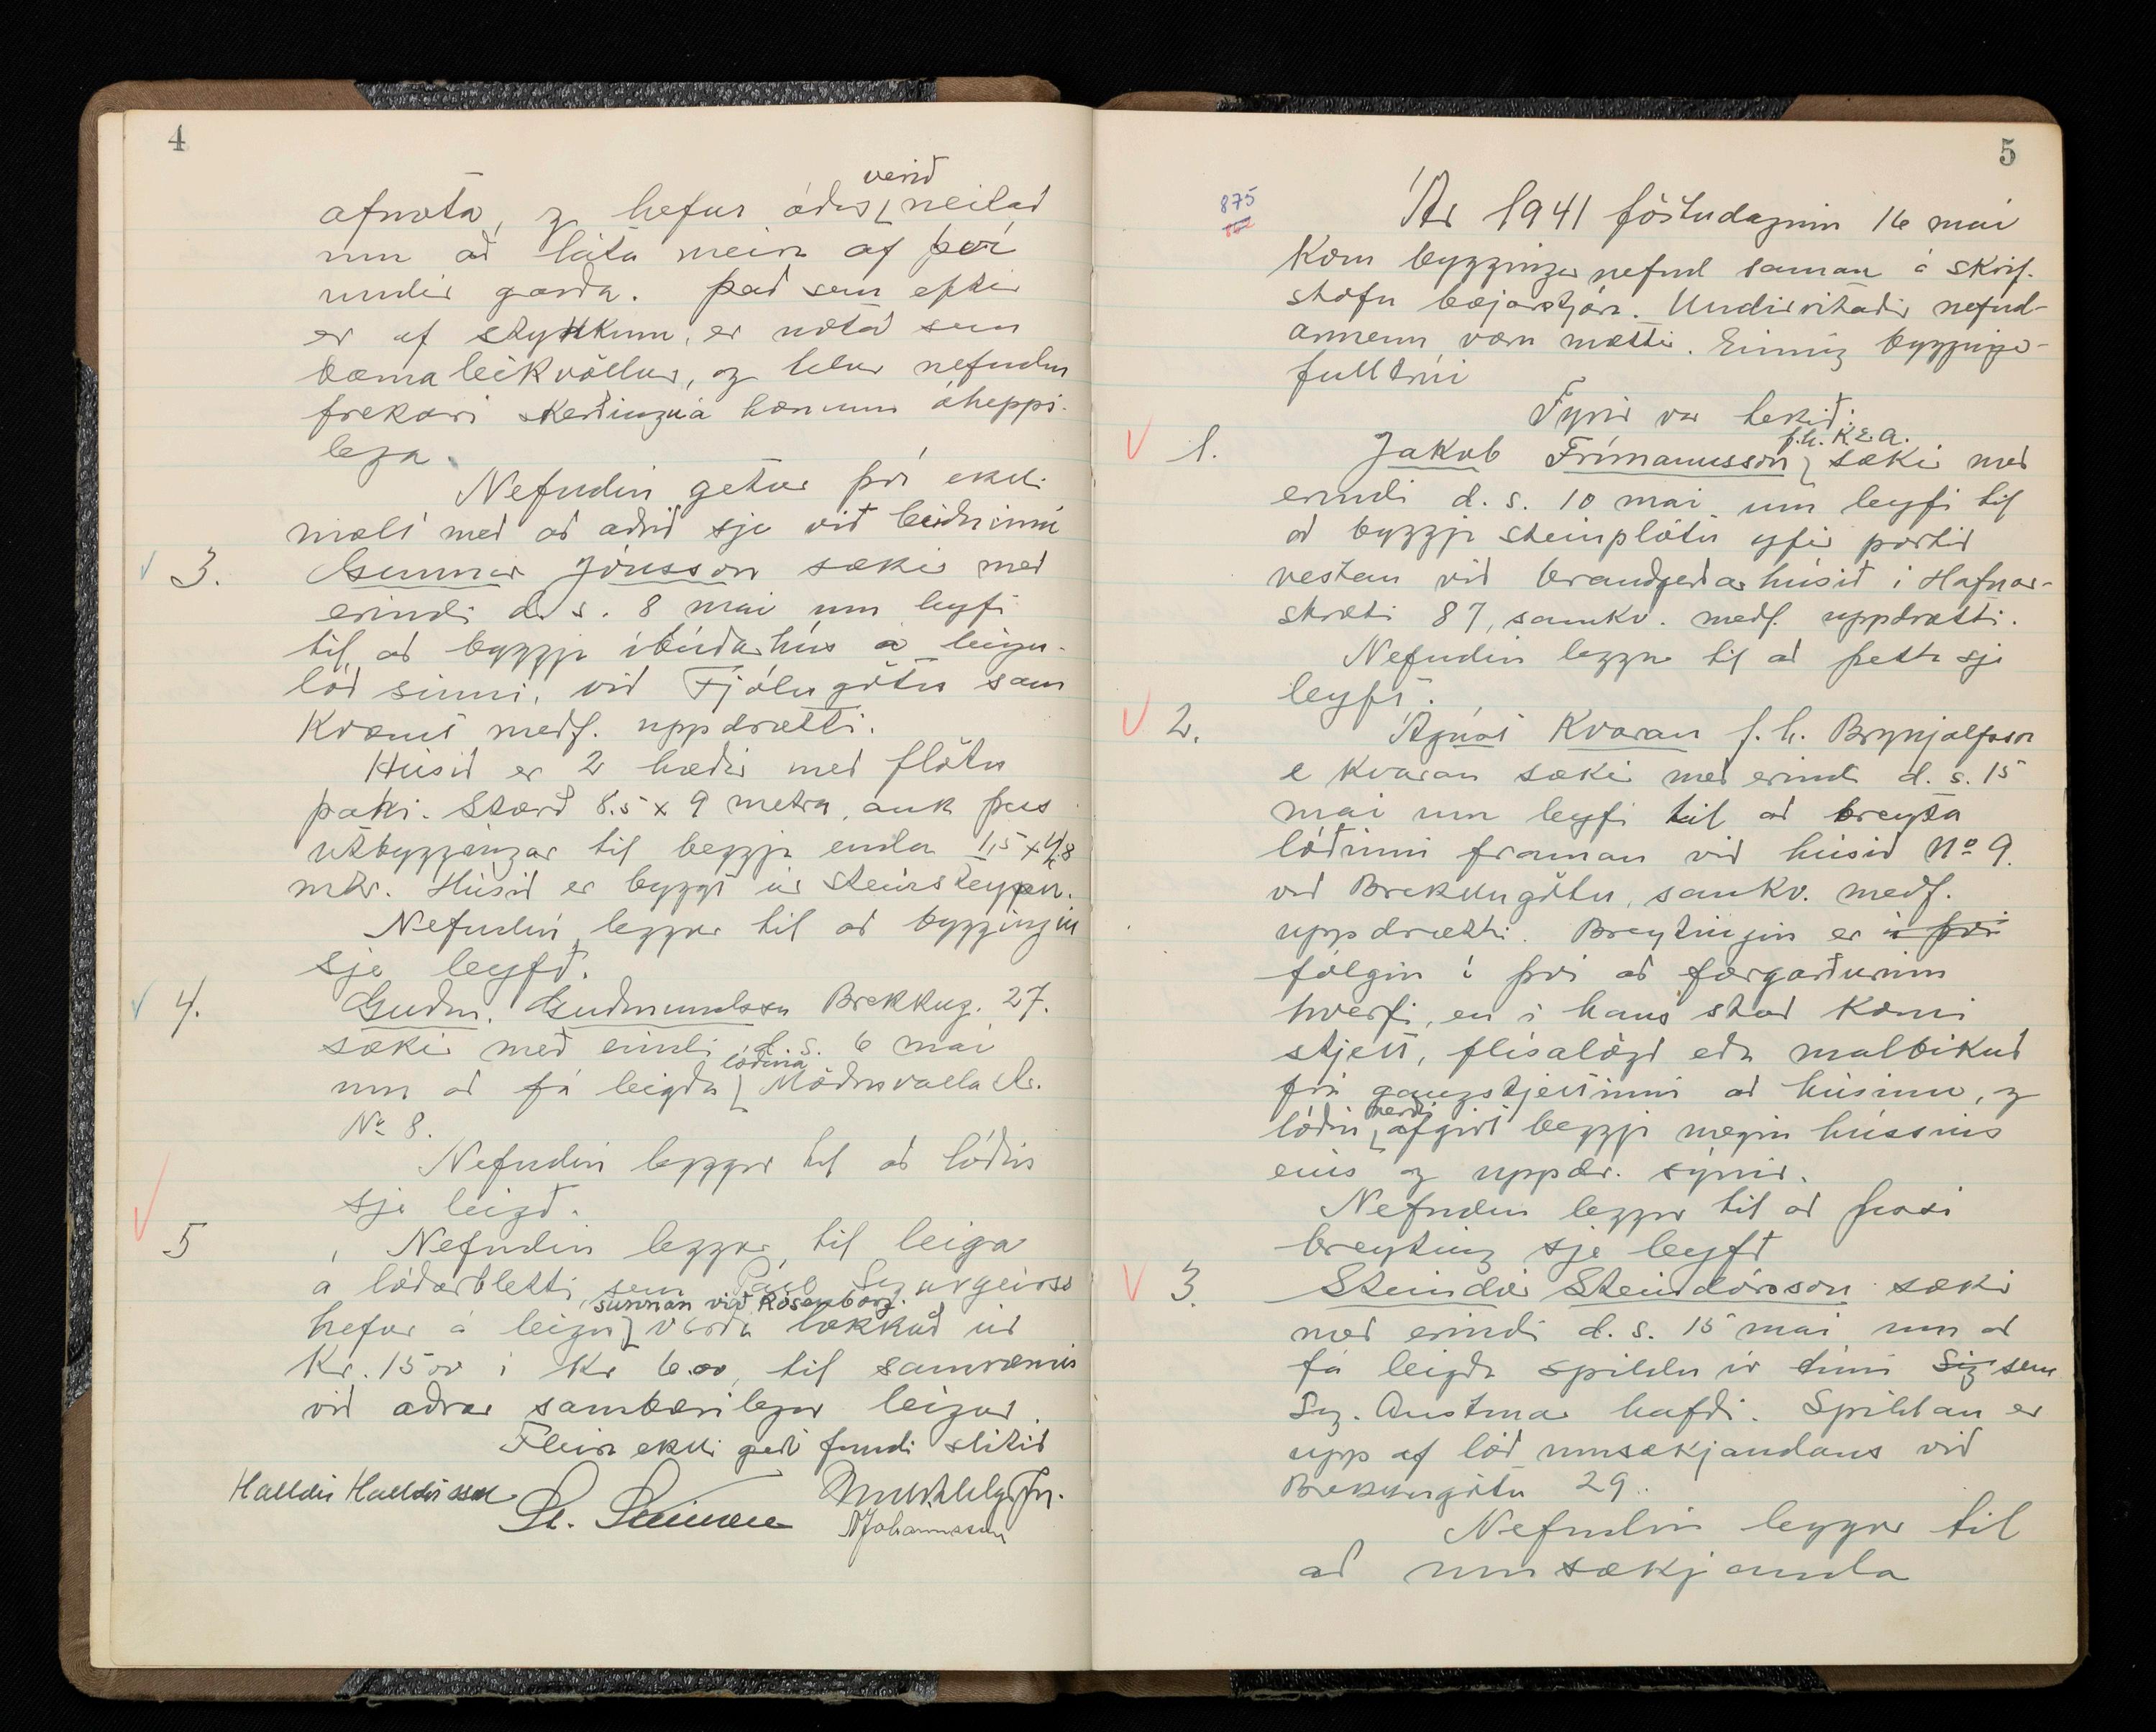 4
afnota, og hefur áður verið neitað
um að láta meira af því
undir garða. Það sem eftir
er af stykkinu, er notað sem
barnaleikvöllur, og telur nefndin
frekari skerðingu á honum óheppi-
lega.
Nefndin getur því ekki
mælt með að orðið sje við beiðninni
3. Gunnar Jónsson sækir með
erindi d. s. 8 maí um leyfi
til að byggja íbúðarhús á leigu-
lóð sinni, við Fjólugötu sam
kvæmt medf. uppdrætti.
Húsið er 2 hæðir með flötu
þaki. Stærð 8.5 x 9 metra, auk þess
útbyggingar til beggja enda 1,5 x 4,8
mtr. Húsið er byggt úr steinsteypu.
Nefndin leggur til að byggingin
sje leyfð.
4. Guðm. Guðmundsson Brekkug. 27.
sækir með erindi d. s. 6 maí
um að fá leigða lóðina Möðruvallastr.
No 8.
Nefndin leggur til að lóðin
sje leigð.
5 Nefndin leggur til leiga
á lóðarbletti, sem Páll Sigurgeirss
hefur á leigu sunnan við Rósenborg. verði lækkuð úr
Kr. 15 00 í Kr 6.00, til samræmis
við aðrar sambærilegar leigur.
Fleira ekki gert fundi slitið
Halldór Halldórsson
Johannsson
5
875
Ár 1941 föstudaginn 16 maí
kom bygginganefnd saman á skrif-
stofu bæjarstjóra. Undirritaðir nefnd-
armenn voru mættir. Einnig bygginga-
fulltrúi
Fyrir var tekið:
1. Jakob Frímannsson f.h. K.E.A. sækir með
erindi d. s. 10 maí um leyfi til
að byggja steinplötu yfir portið
vestan við brauðgerðarhúsið í Hafnar-
stræti 87, samkv. medf. uppdrætti.
Nefndin leggur til að þetta sje
leyft.
2. Ágúst Kvaran f. h. Brynjólfsson
& Kvaran sækir með erindi d. s. 15
maí um leyfi til að breyta
lóðinni framan við húsið No 9.
við Brekkugötu, samkv. medf.
uppdrætti. Breytingin er í því
fólgin í því að forgarðurinn
hverfi, en í hans stað komi
stjett, flísalögð eða malbikuð
frá gangstjettinni að húsinu, og
lóðin verði afgirt beggja megin hússins
eins og uppdr. sýnir.
Nefndin leggur til að þessi
breyting sje leyfð
3. Steindór Steindórsson sækir
með erindi d. s. 15 maí um að
fá leigða spildu úr túni Sig sem
Sig. Austmar hafði. Spildan er
upp af lóð umsækjandans við
Brekkugötu 29.
Nefndin leggur til
að umsækjanda